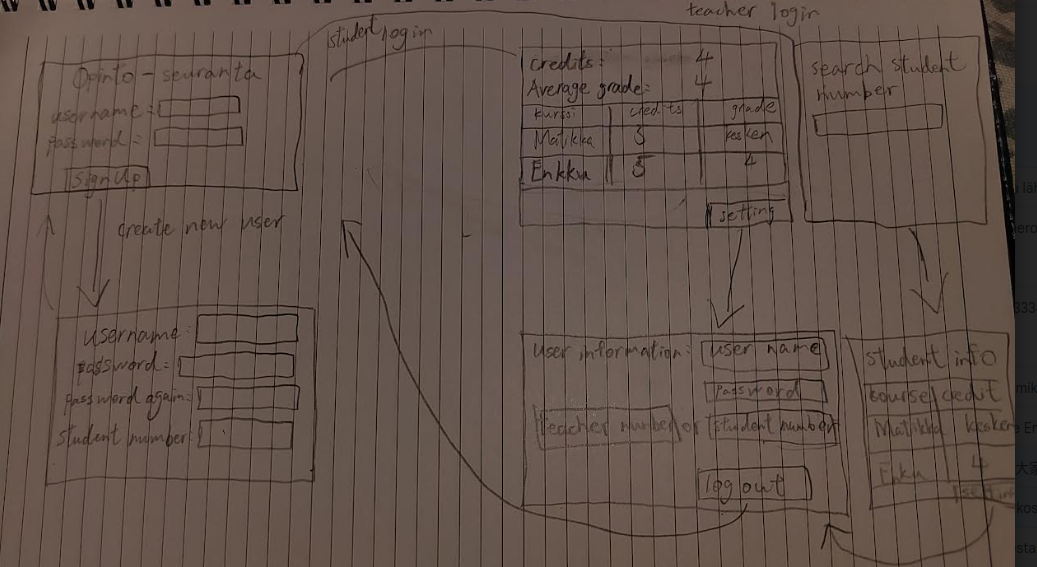 teacher login
student login
Opinto - seuranta
username:
password:
Sign Up
create new user
username:
password:
password again:
student number:
credits: 4
Average grade: 4
kurssi credits grade
Matikka 3 kesken
Enkku 5 4
setting
search student
number
user information: user name
password
teacher number or student number
log out
student info
course credit
Matikka kesken
Enku 4